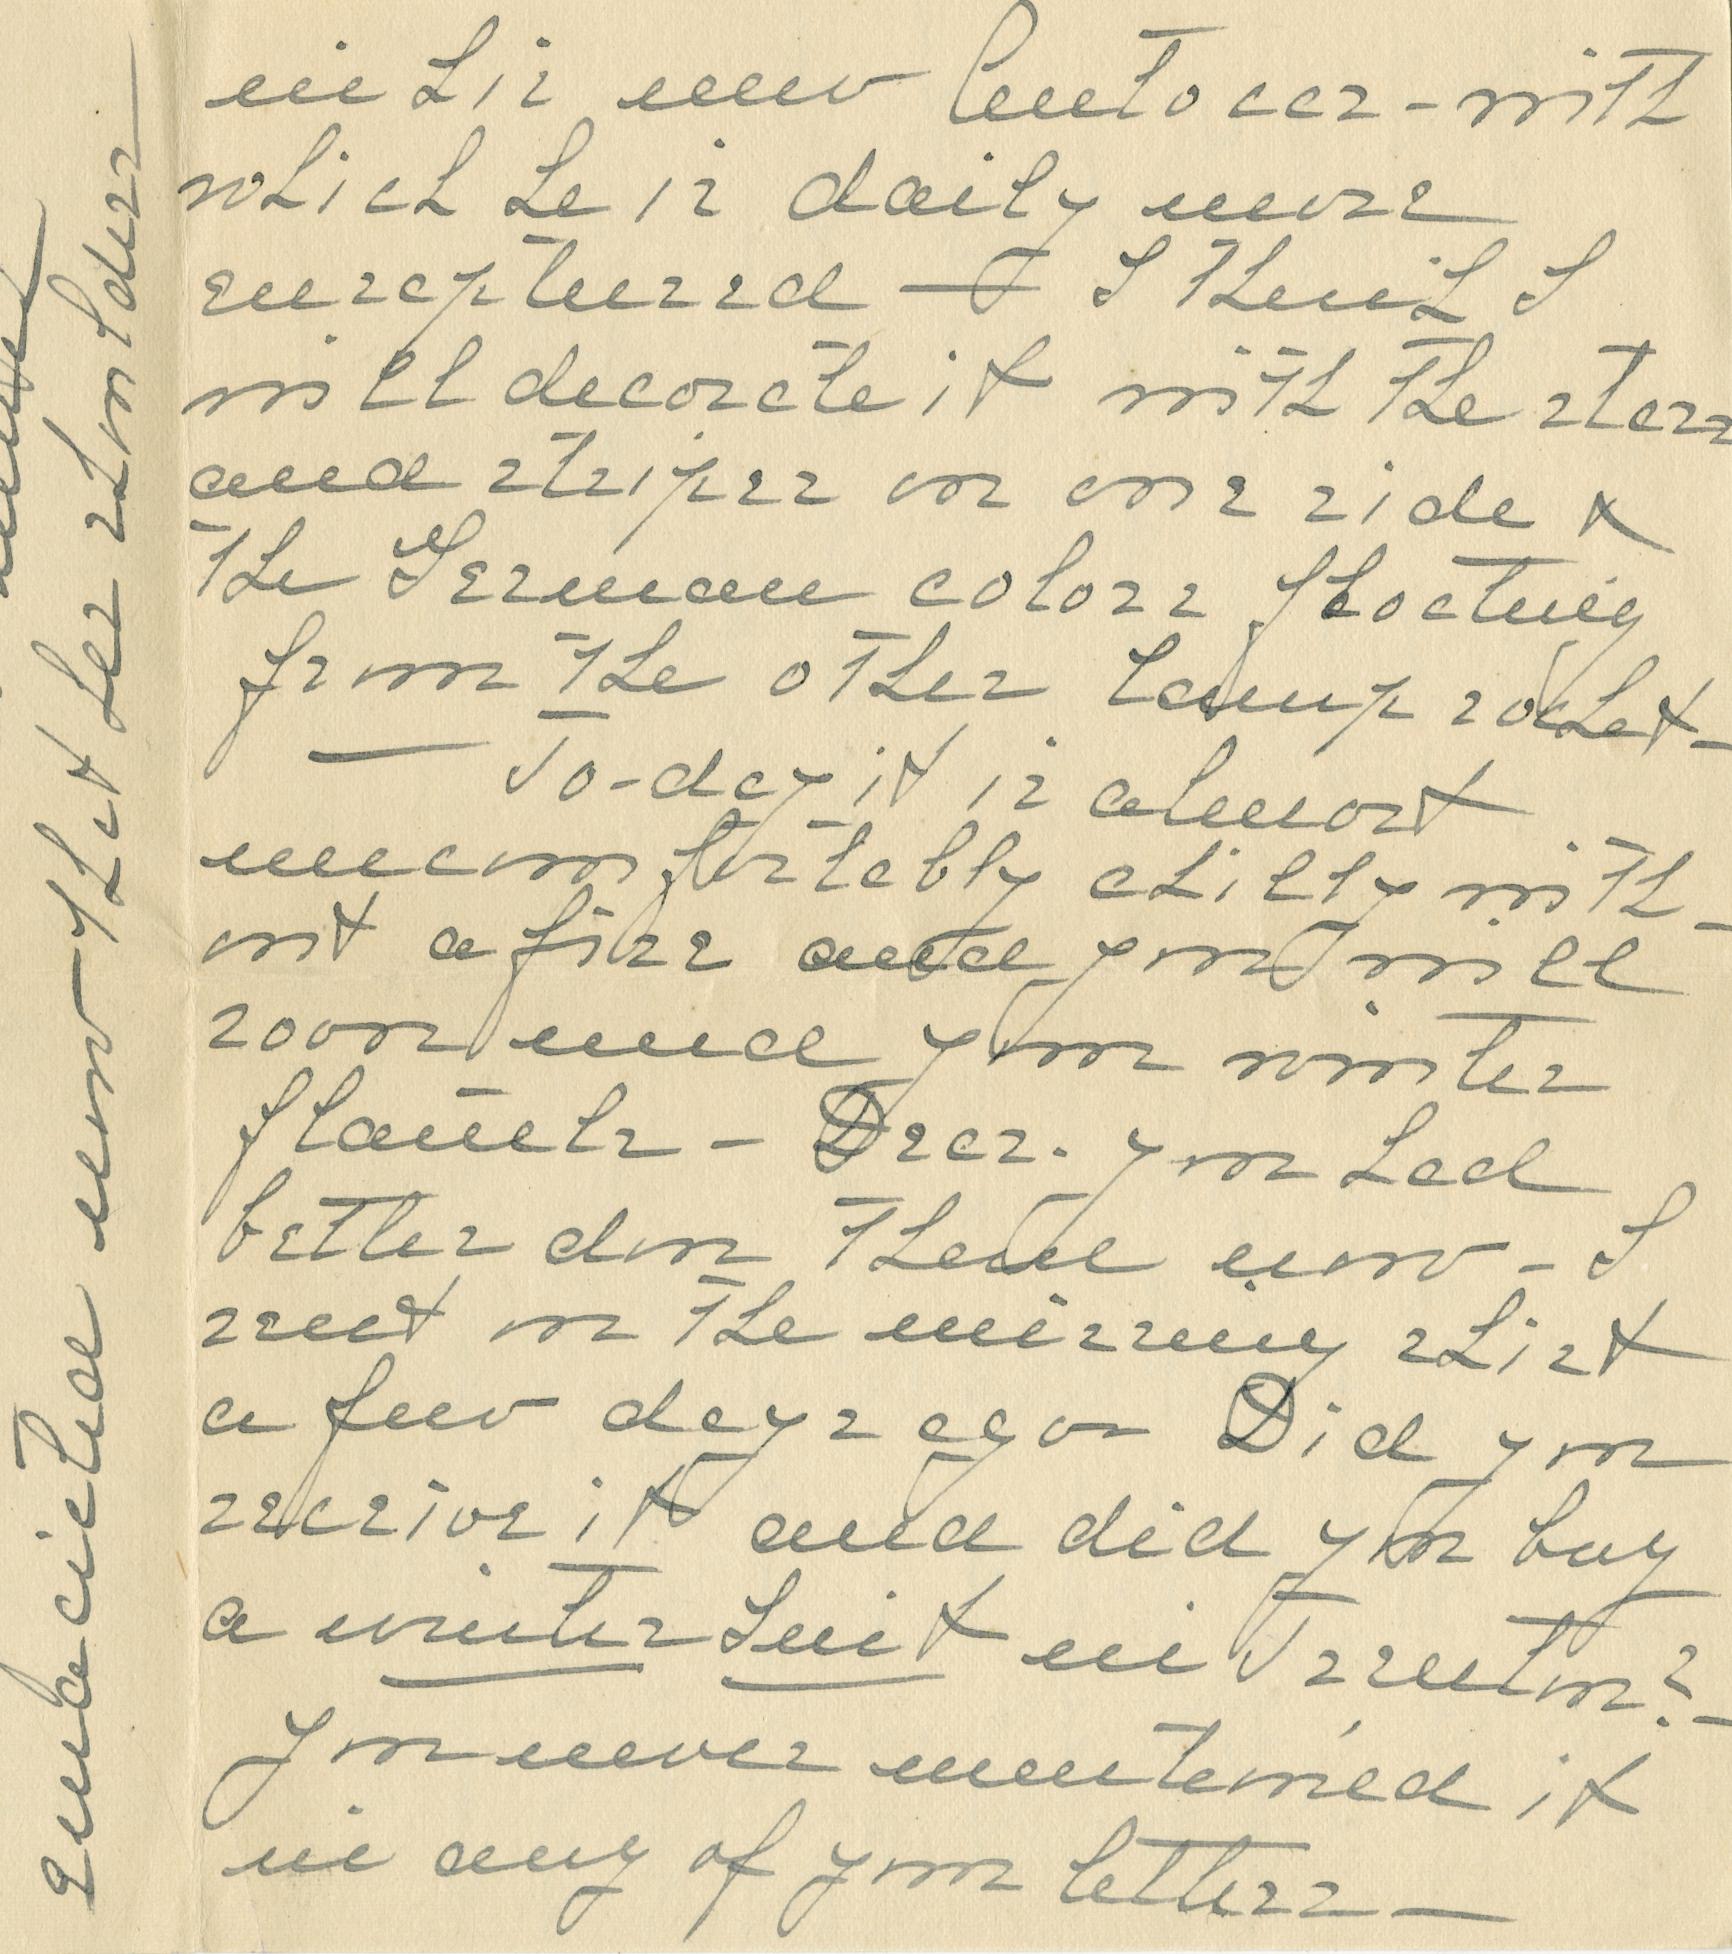 in his new Autocar - with
which he is daily more
enraptured — I think I
will decorate it with the stars
and stripes on one side &
the German colors floating
from the other lamp rocket -
— To-day it is almost
uncomfortably chilly with-
out a fire and you will
soon need your winter
flannels - Dear. you had
better don them now - I
sent on the missing shirt
a few days ago Did you
receive it and did you buy
a winter Suit in Trenton? -
You never mentioned it
in any of your letters —
emaciated now that her shoulder